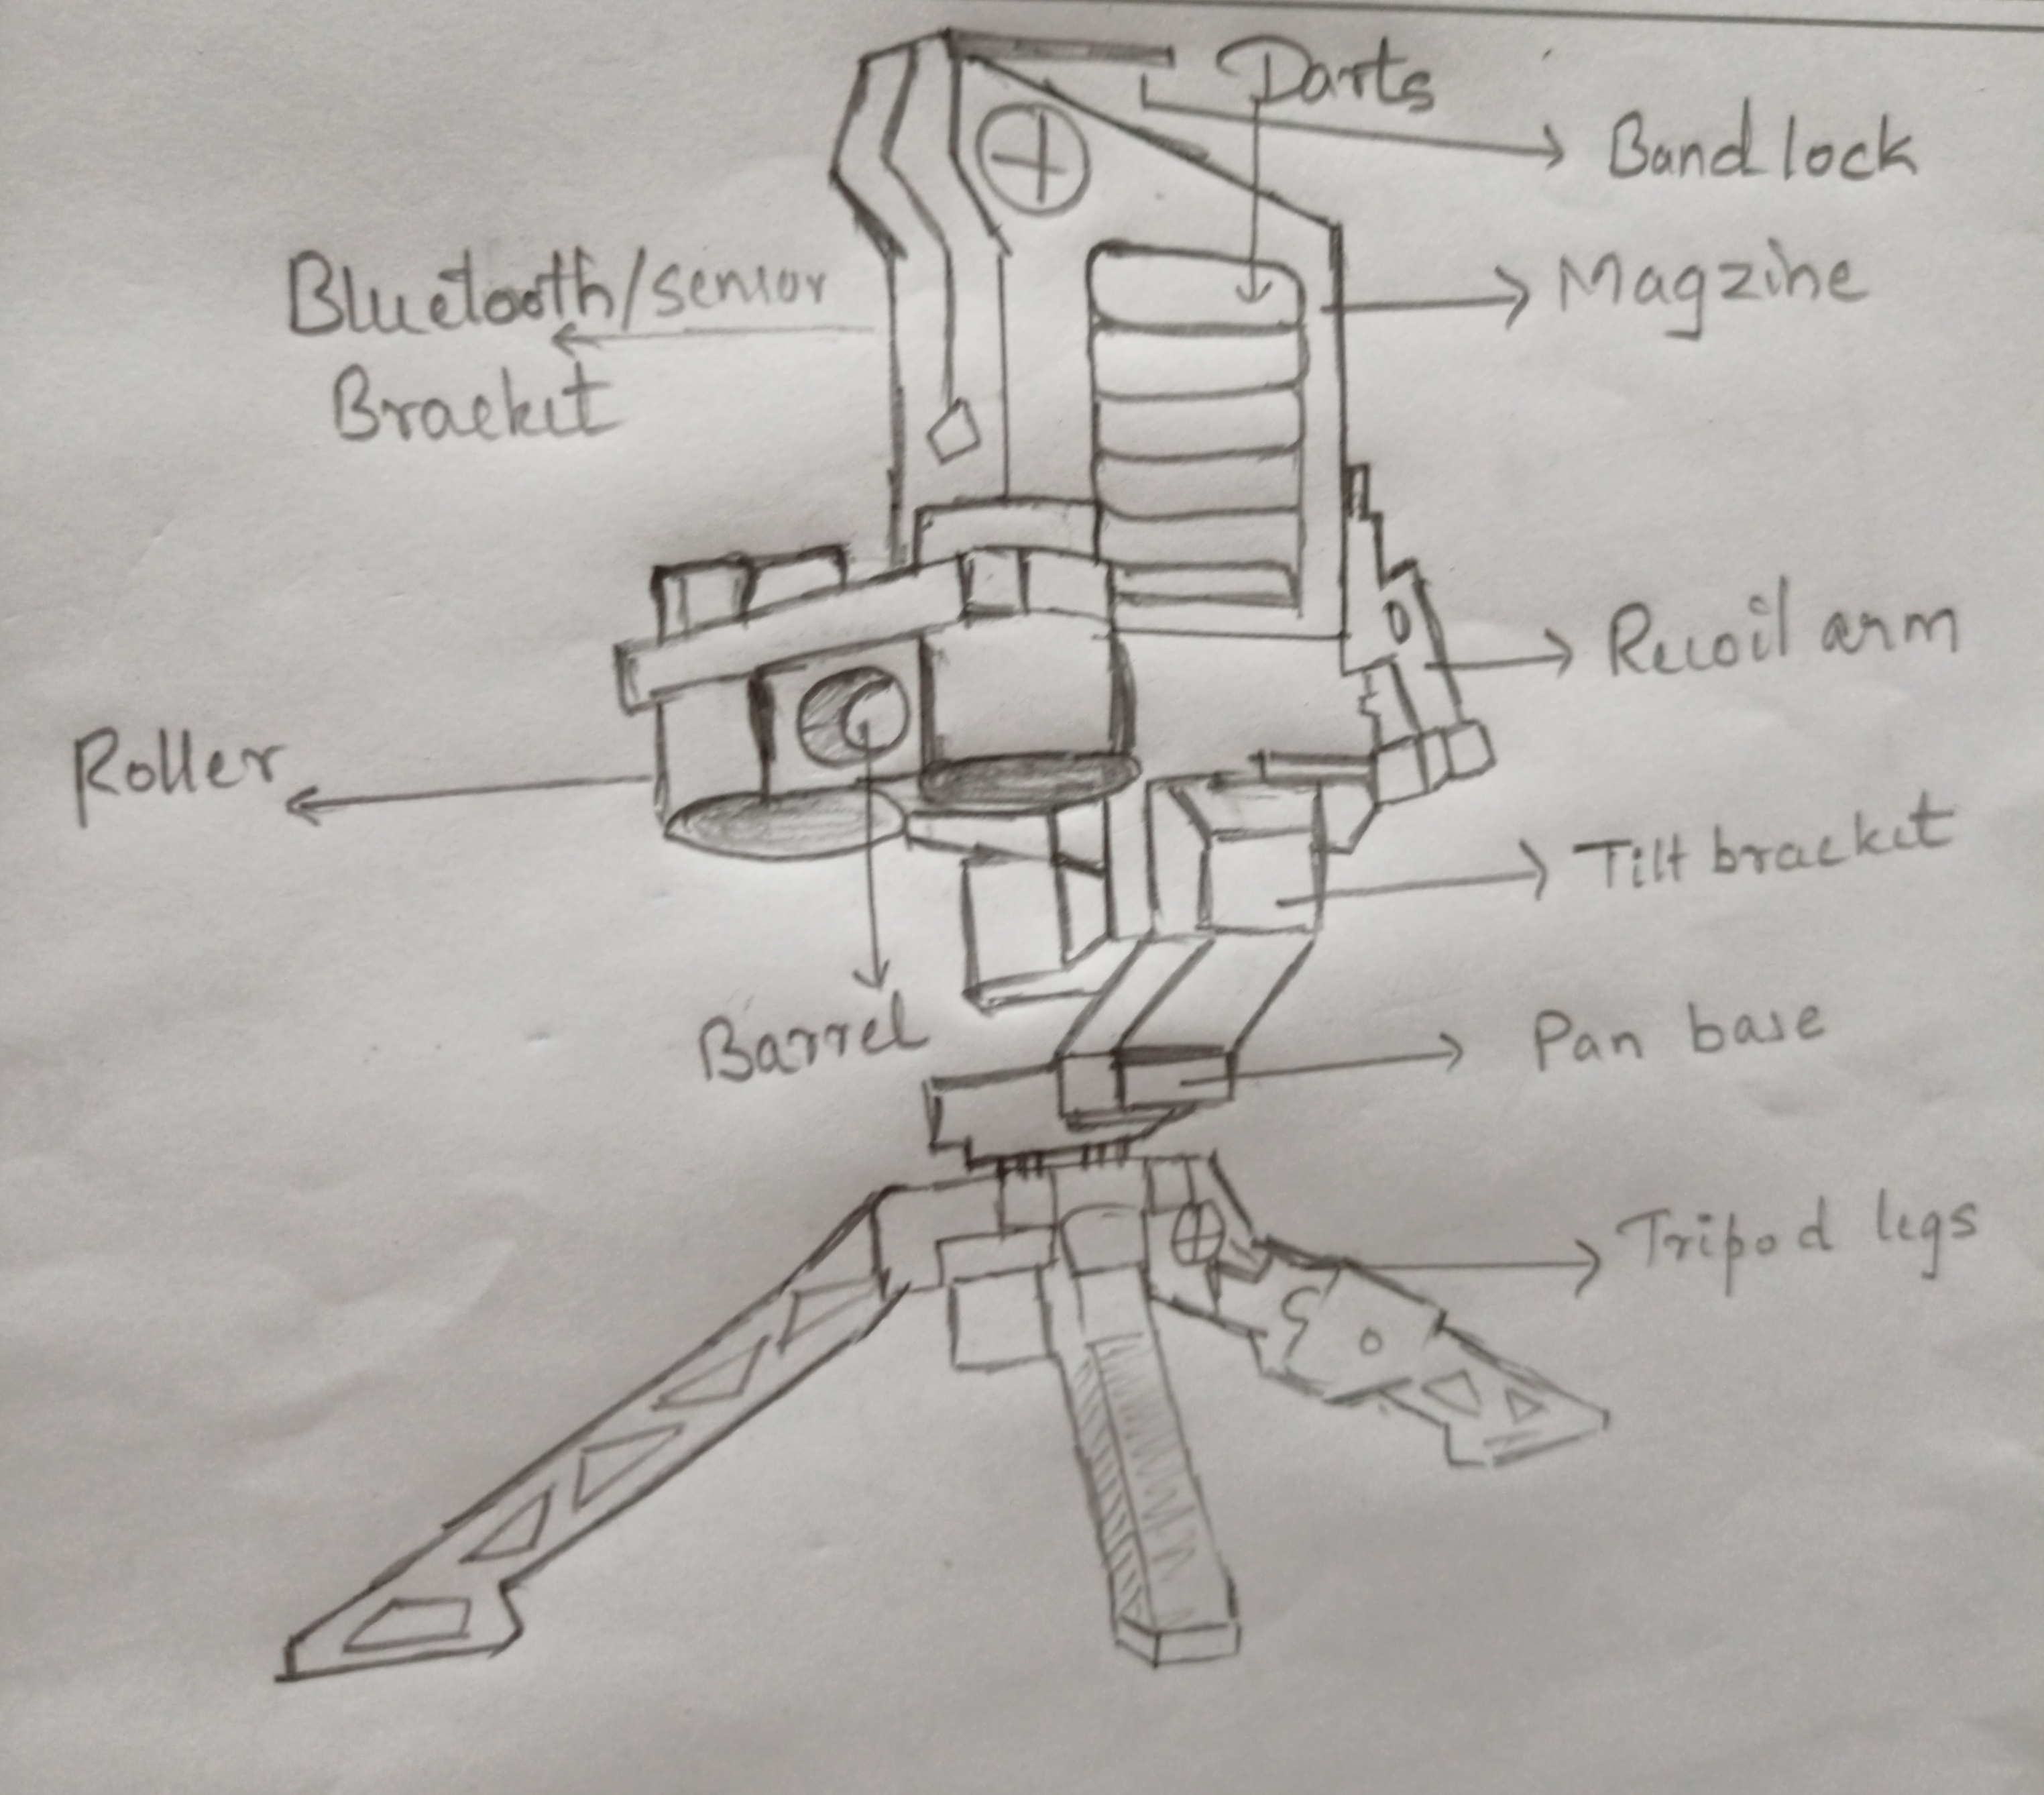 Darts
Band lock
Bluetooth/sensor
Bracket
Magzine
Recoil arm
Roller
Tilt bracket
Barrel
Pan base
Tripod legs